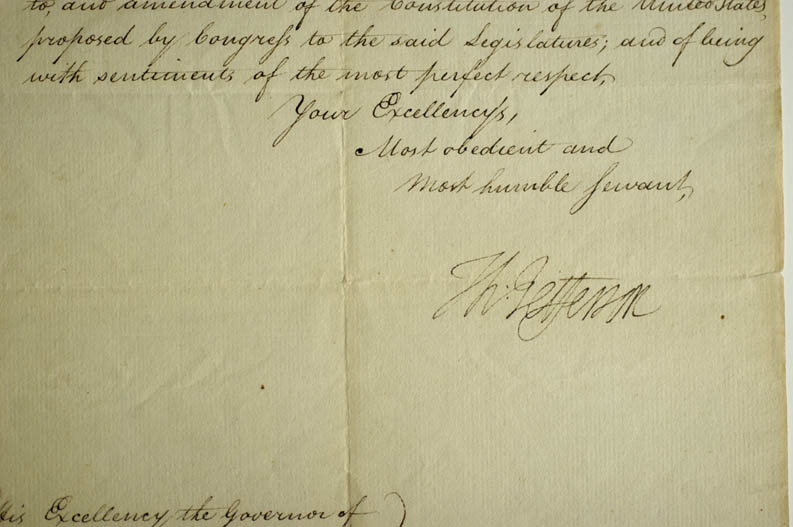 to, and amendment of the Constitution of the United States
proposed by Congress to the said Legislatures; and of being
with sentiments of the most perfect respect,
Your Excellency's,
Most obedient and
Most humble Servant,
Th: Jefferson
His Excellency the Governor of )